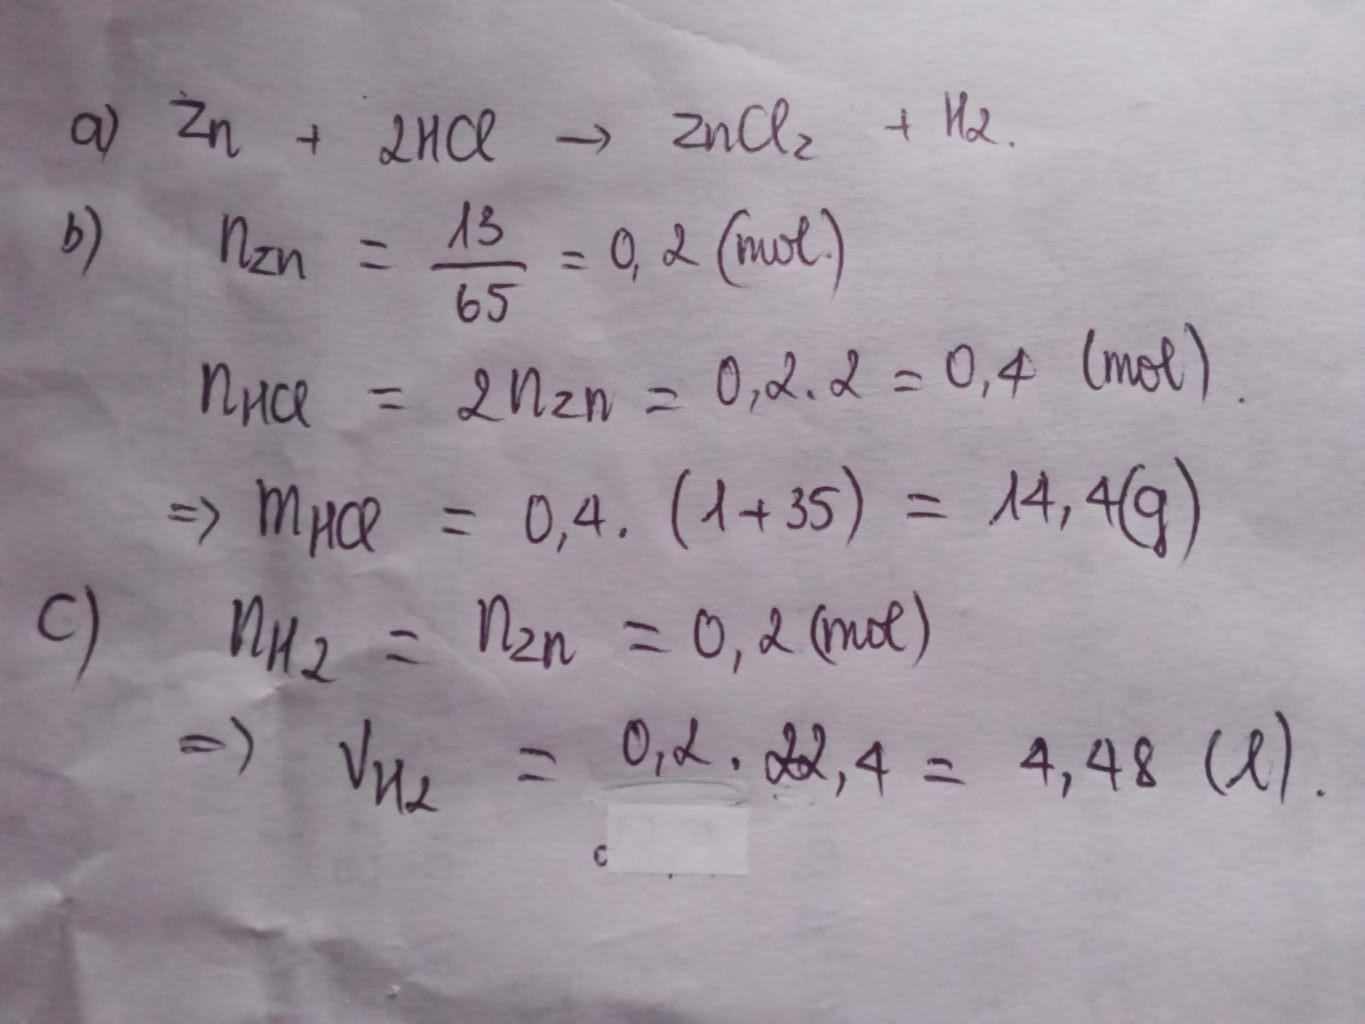 a) Zn + 2HCl → ZnCl₂ + H₂.
b) nZn = 13/65 = 0,2 (mol.)
nHCl = 2nZn = 0,2.2 = 0,4 (mol).
=> mHCl = 0,4. (1+35) = 14,4(g)
c) nH₂ = nZn = 0,2 (mol)
=> VH₂ = 0,2. 22,4 = 4,48 (l).
c